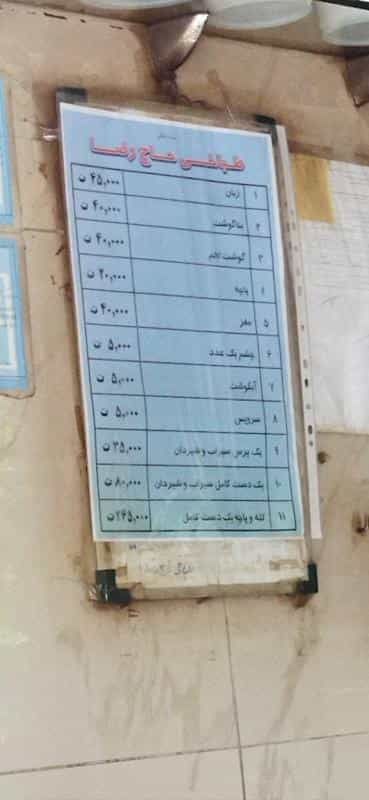 طباخی حاج رضا
۱ زبان ۴۵,۰۰۰ ت
۲ بناگوشت ۴۰,۰۰۰ ت
۳ گوشت لخم ۴۰,۰۰۰ ت
۴ پاچه ۲۰,۰۰۰ ت
۵ مغز ۴۰,۰۰۰ ت
۶ چشم یک عدد ۵,۰۰۰ ت
۷ آبگوشت ۵,۰۰۰ ت
۸ سرویس ۵,۰۰۰ ت
۹ یک پرس سیراب و شیردان ۳۵,۰۰۰ ت
۱۰ یک دست کامل سیراب و شیردان ۸۰,۰۰۰ ت
۱۱ کله و پاچه یک دست کامل ۲۶۵,۰۰۰ ت